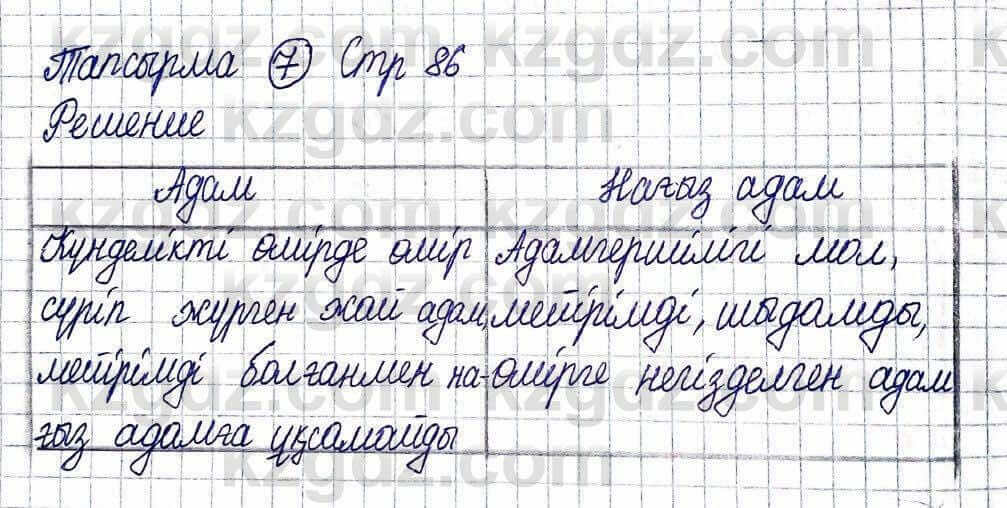 Тапсырма 7 Стр 86
Решение
Адам Нағыз адам
Күнделікті өмірде өмір Адамгершілігі мол,
сүріп жүрген жай адам, мейірімді, шыдамды,
мейірімді болғанмен на- өмірге негізделген адам
ғыз адамға ұқсамайды
kzgdz.com